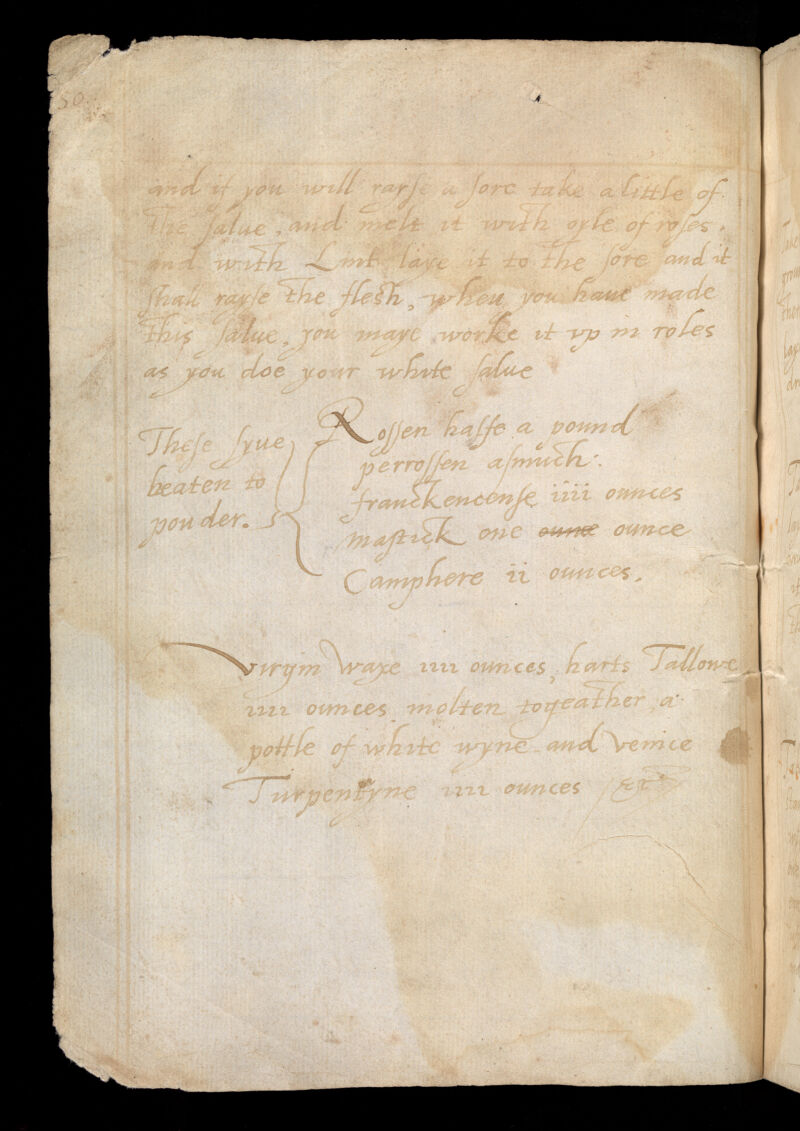 50.
and if you will rayse a sore take a little of
the salue, and melt it with oyle of roses,
and with Lint laye it to the sore and it
shall rayse the flesh, when you haue made
this salue, you maye worke it vp in roles
as you doe your white salue
These fyue
beaten to
pouder.
Rossen halfe a pound
perrossen asmuch:
franckencense iiii ounces
mastick one ounce ounce
Camphere ii ounces.
Virgin waxe iiii ounces, harts Tallowe
iiii ounces molten togeather, a
pottle of white wyne and Venice
Turpentyne iiii ounces &c